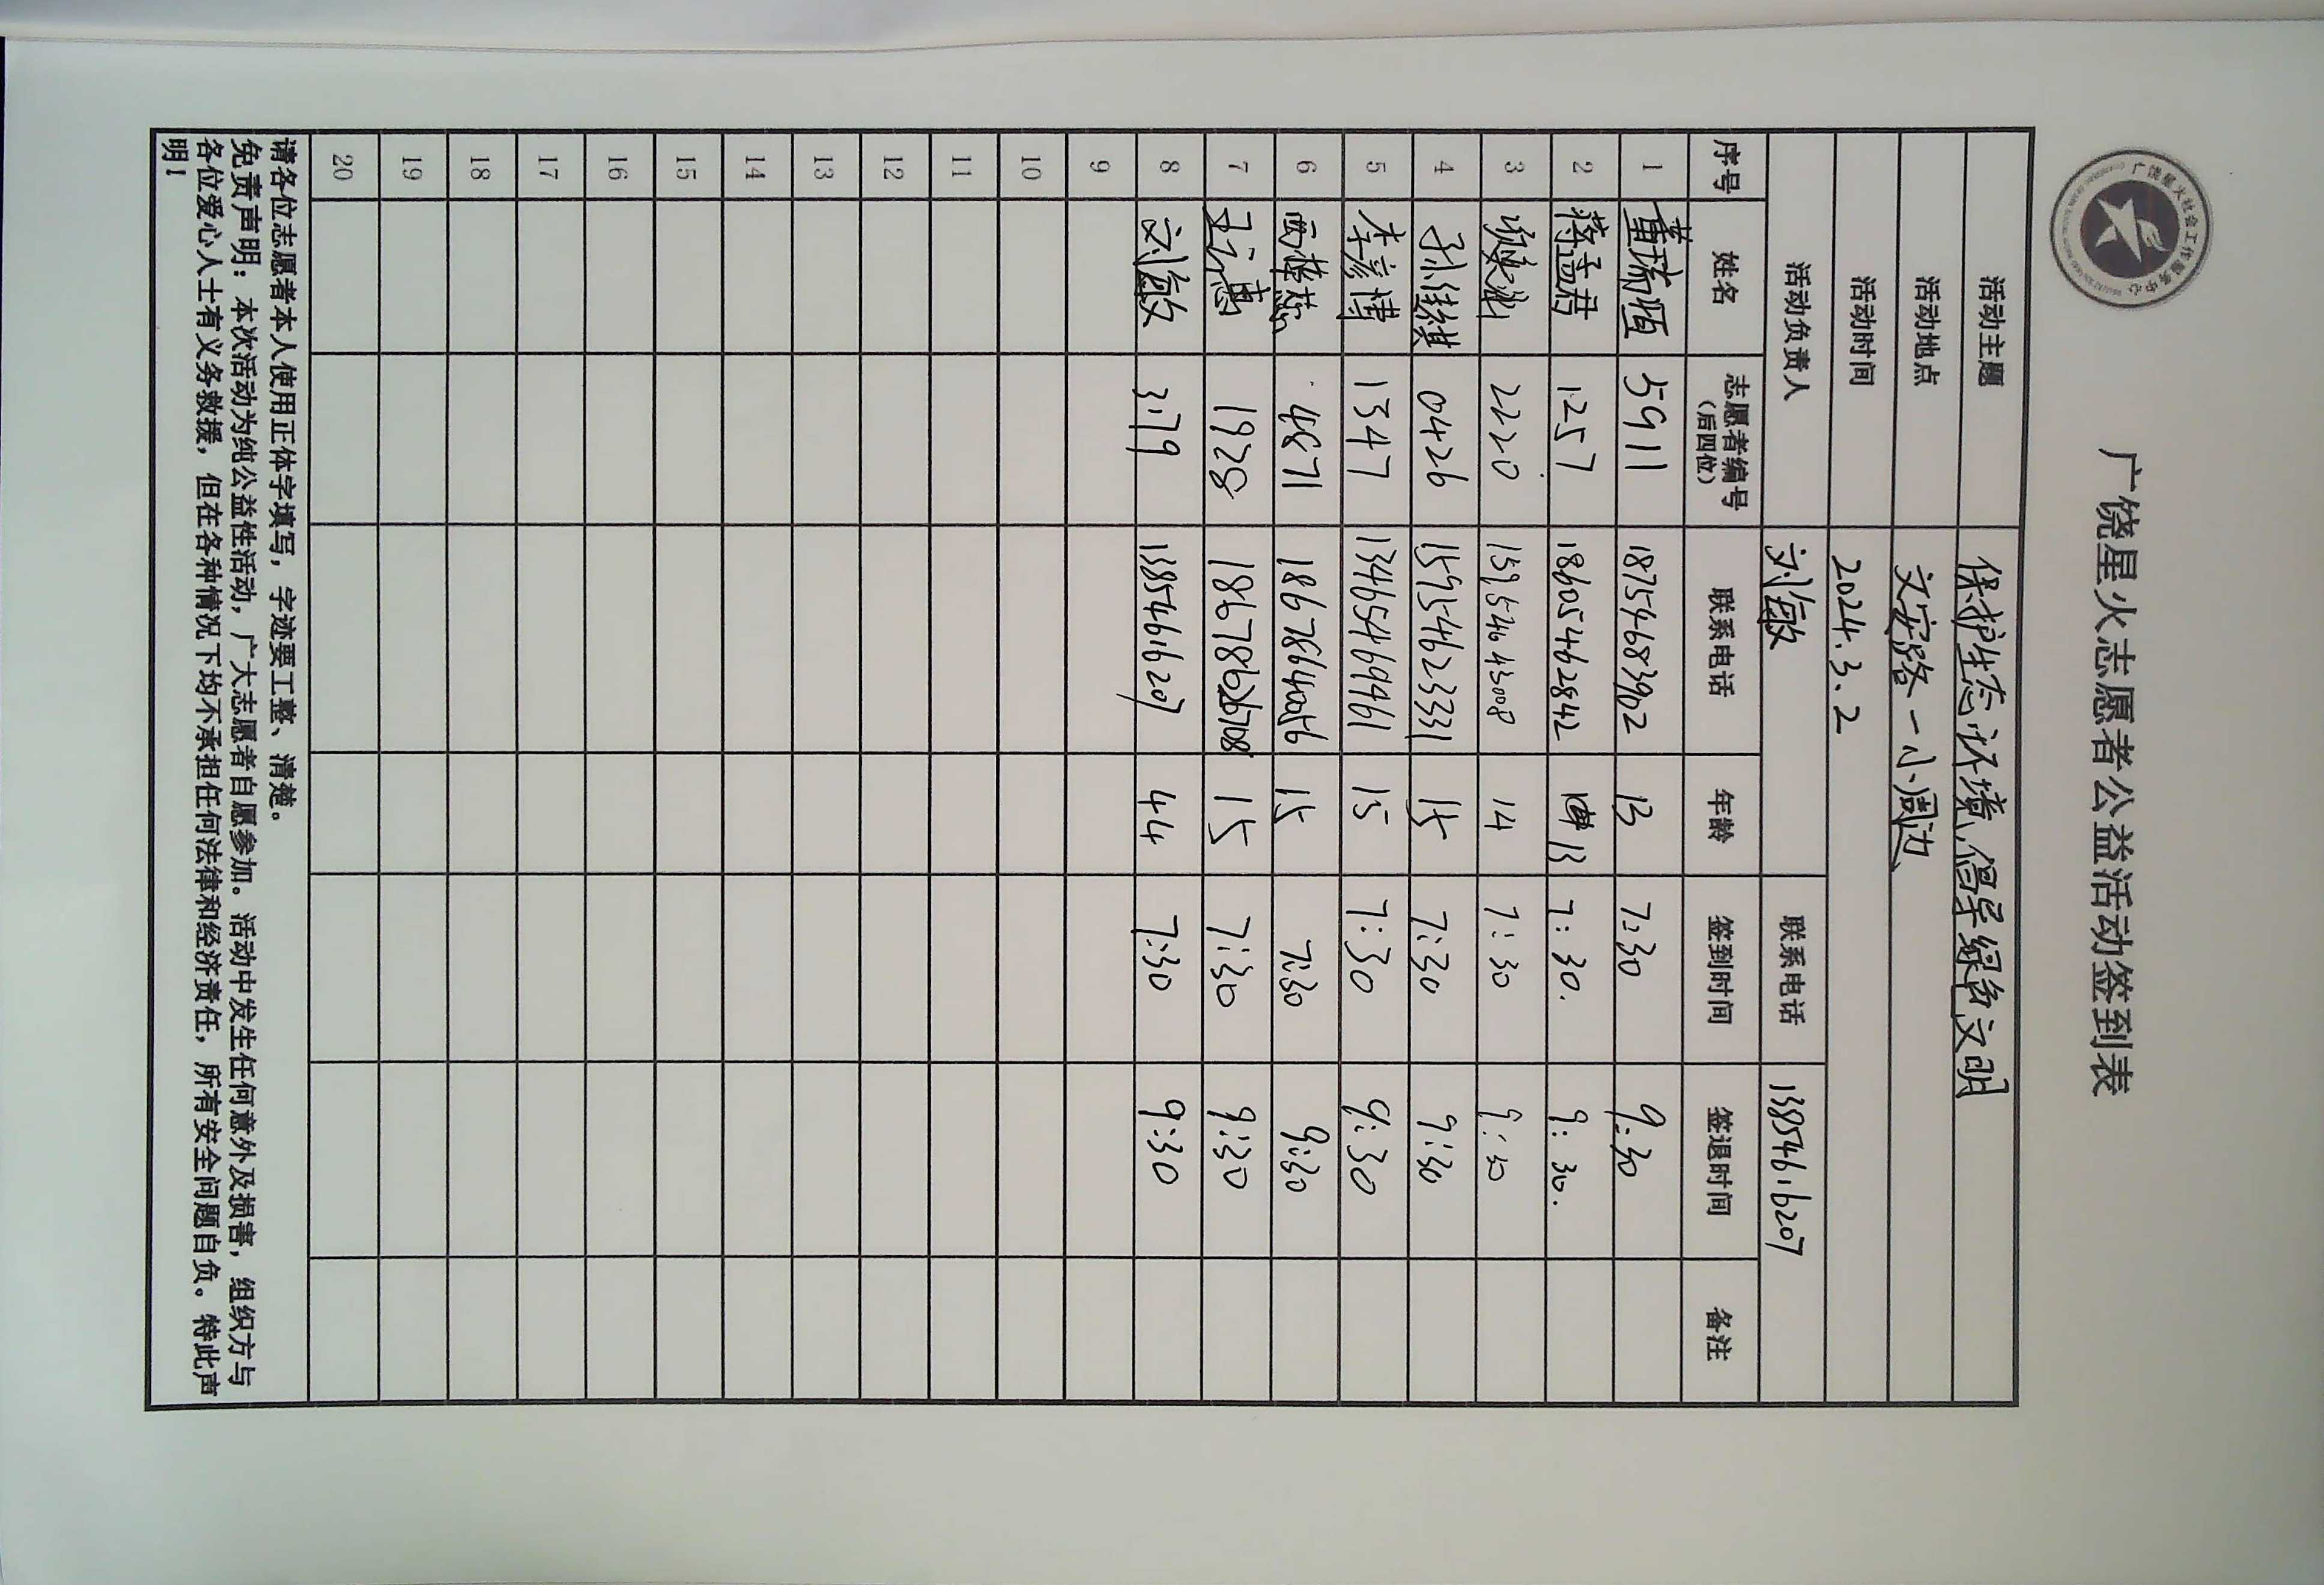 广饶星火社会工作服务中心
广饶星火志愿者公益活动签到表
活动主题 保护生态环境,倡导绿色文明
活动地点 文安路一小周边
活动时间 2024.3.2
活动负责人 刘敏 联系电话 13854616207
序号 姓名 志愿者编号（后四位） 联系电话 年龄 签到时间 签退时间 备注
1 董瑞恒 5911 18754683902 13 7:30 9:30
2 蒋孟君 1257 18605462842 13 7:30. 9:30.
3 2220 14 7:30 9:30
4 孙继祺 0426 15954623331 15 7:30 9:30
5 李彦博 1347 13465469461 15 7:30 9:30
6 4871 18678640056 15 7:30 9:30
7 1928 15 7:30 9:30
8 刘敏 3179 13854616207 44 7:30 9:30
9
10
11
12
13
14
15
16
17
18
19
20
请各位志愿者本人使用正体字填写，字迹要工整、清楚。
免责声明：本次活动为纯公益性活动，广大志愿者自愿参加。活动中发生任何意外及损害，组织方与
各位爱心人士有义务救援，但在各种情况下均不承担任何法律和经济责任，所有安全问题自负。特此声
明！